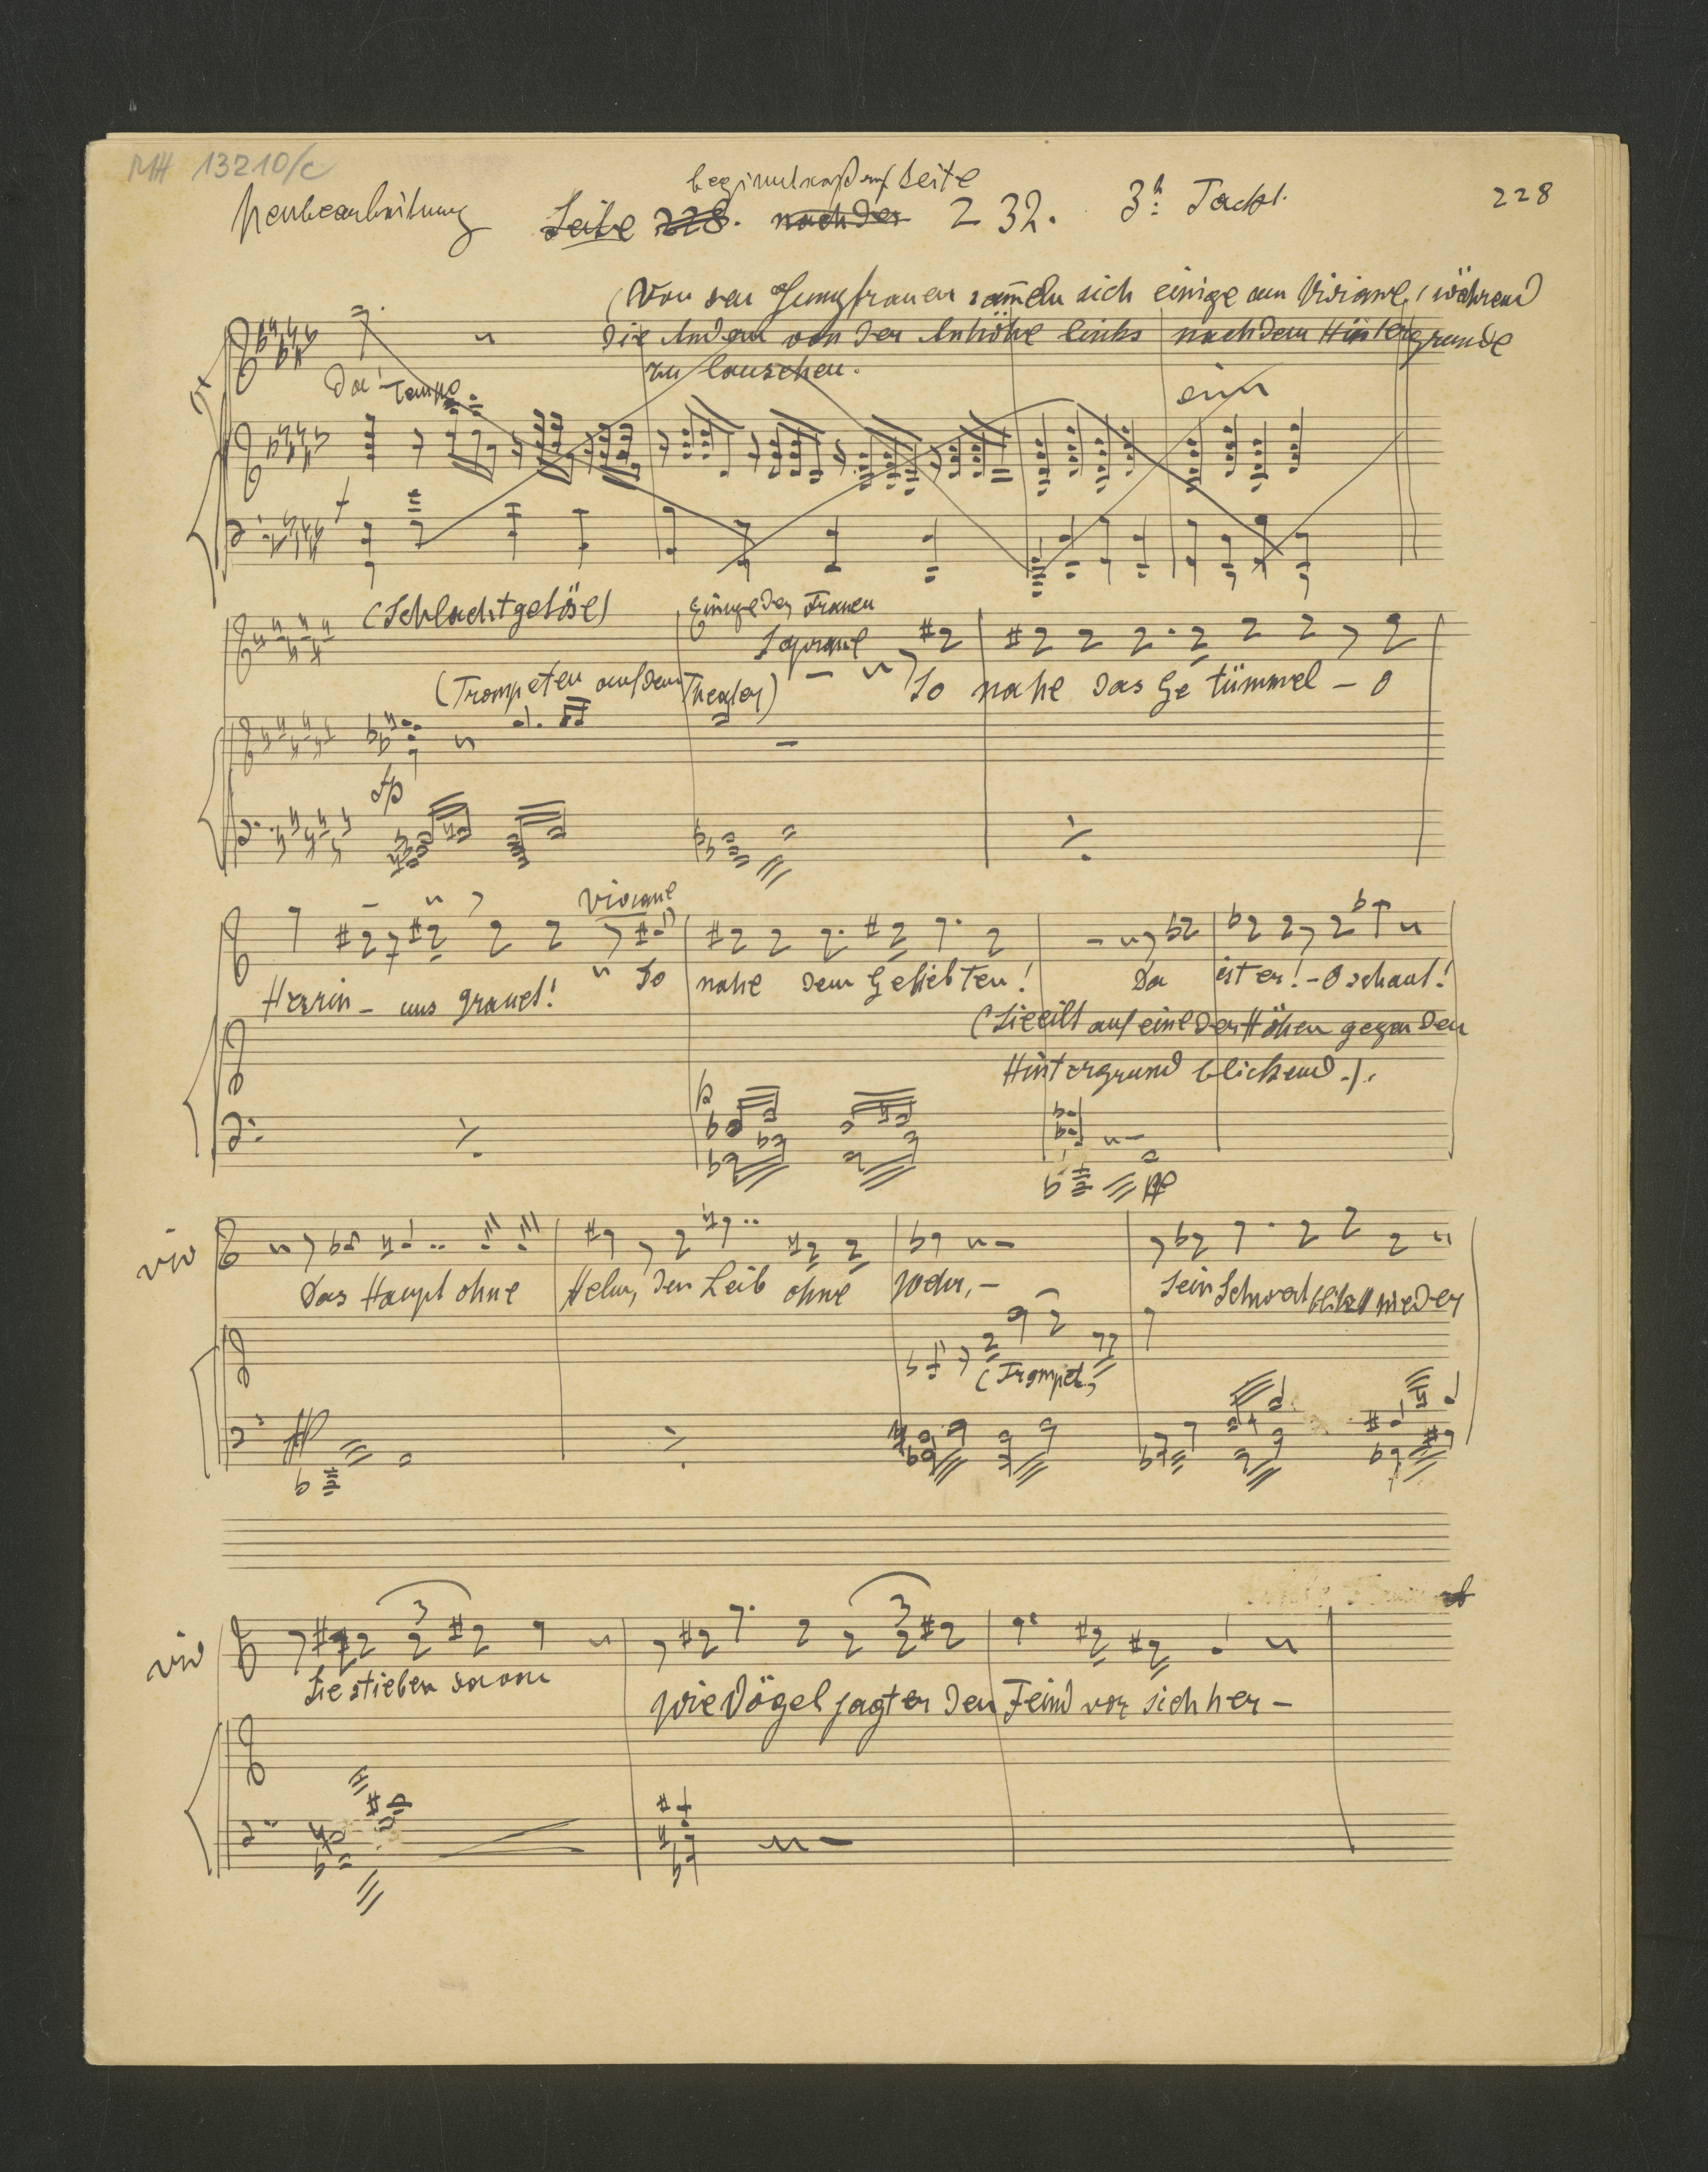 MH 13210/c
Neubearbeitung
beginnt auf Seite
Seite 228. nach der 232. 3te Tackt.
228
(Von den Jungfrauen sam̄eln sich einige um Viviane, während
die Andern von der Anhöhe links nach dem Hintergrunde
zu lauschen.
Da! Tempo
ein
(Schlachtgetöse)
Einige der Frauen
Soprane
(Trompeten auf dem Theater)
So nahe das Getümmel – O
fp
Viviane
Herrin – uns graut! So nahe dem Geliebten! Da ist er! – O schaut!
(Sie eilt auf eine der Höhen gegen den
Hintergrund blickend.).
p
pp
Viv
Das Haupt ohne Helm, den Leib ohne Wehr, – Sein Schwert blitzt nieder
(Trompet.)
pp
Viv
3
3
Sie stieben davon wie Vögel jagt er den Feind vor sich her –